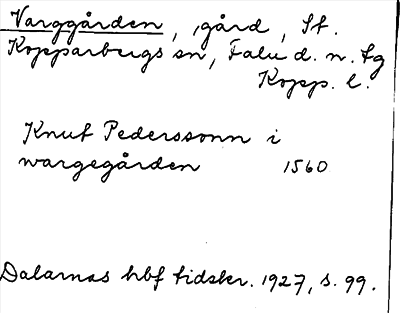 Varggården, gård, St.
Kopparbergs sn, Falu d. n. tg
Kopp. l.
Knut Pederssonn i
wargegården 1560
Dalarnas hbf tidskr. 1927, s. 99.